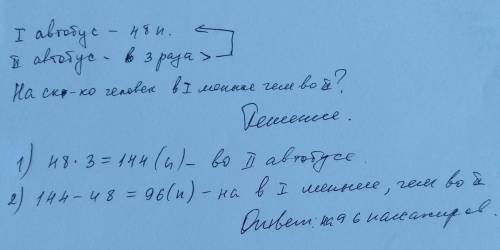 I автобус – 48 п.
II автобус – в 3 раза >
На ск-ко человек в I меньше чем во II?
Решение.
1) 48 · 3 = 144 (ч) – во II автобусе.
2) 144 – 48 = 96 (п) – на в I меньше, чем во II
Ответ: на 96 пассажиров.